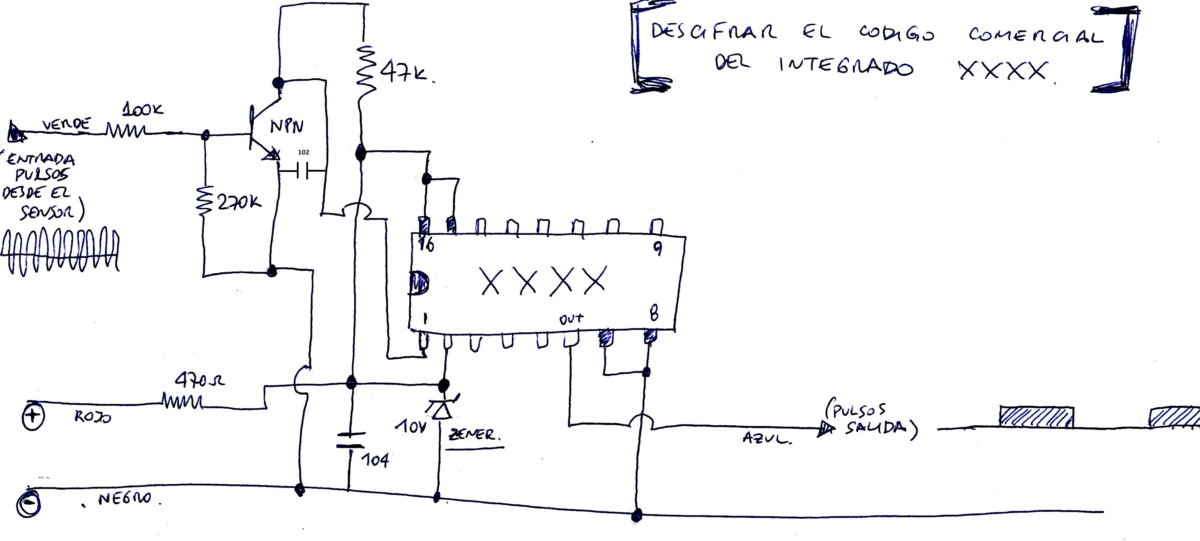 DESCIFRAR EL CODIGO COMERCIAL
DEL INTEGRADO XXXX.
47K.
100K
VERDE
NPN
102
(ENTRADA
PULSOS
DESDE EL
SENSOR)
270K
16
9
XXXX
1
OUT
8
470Ω
+
ROJO
10V
ZENER.
104
(PULSOS
SALIDA)
AZUL.
-
. NEGRO.